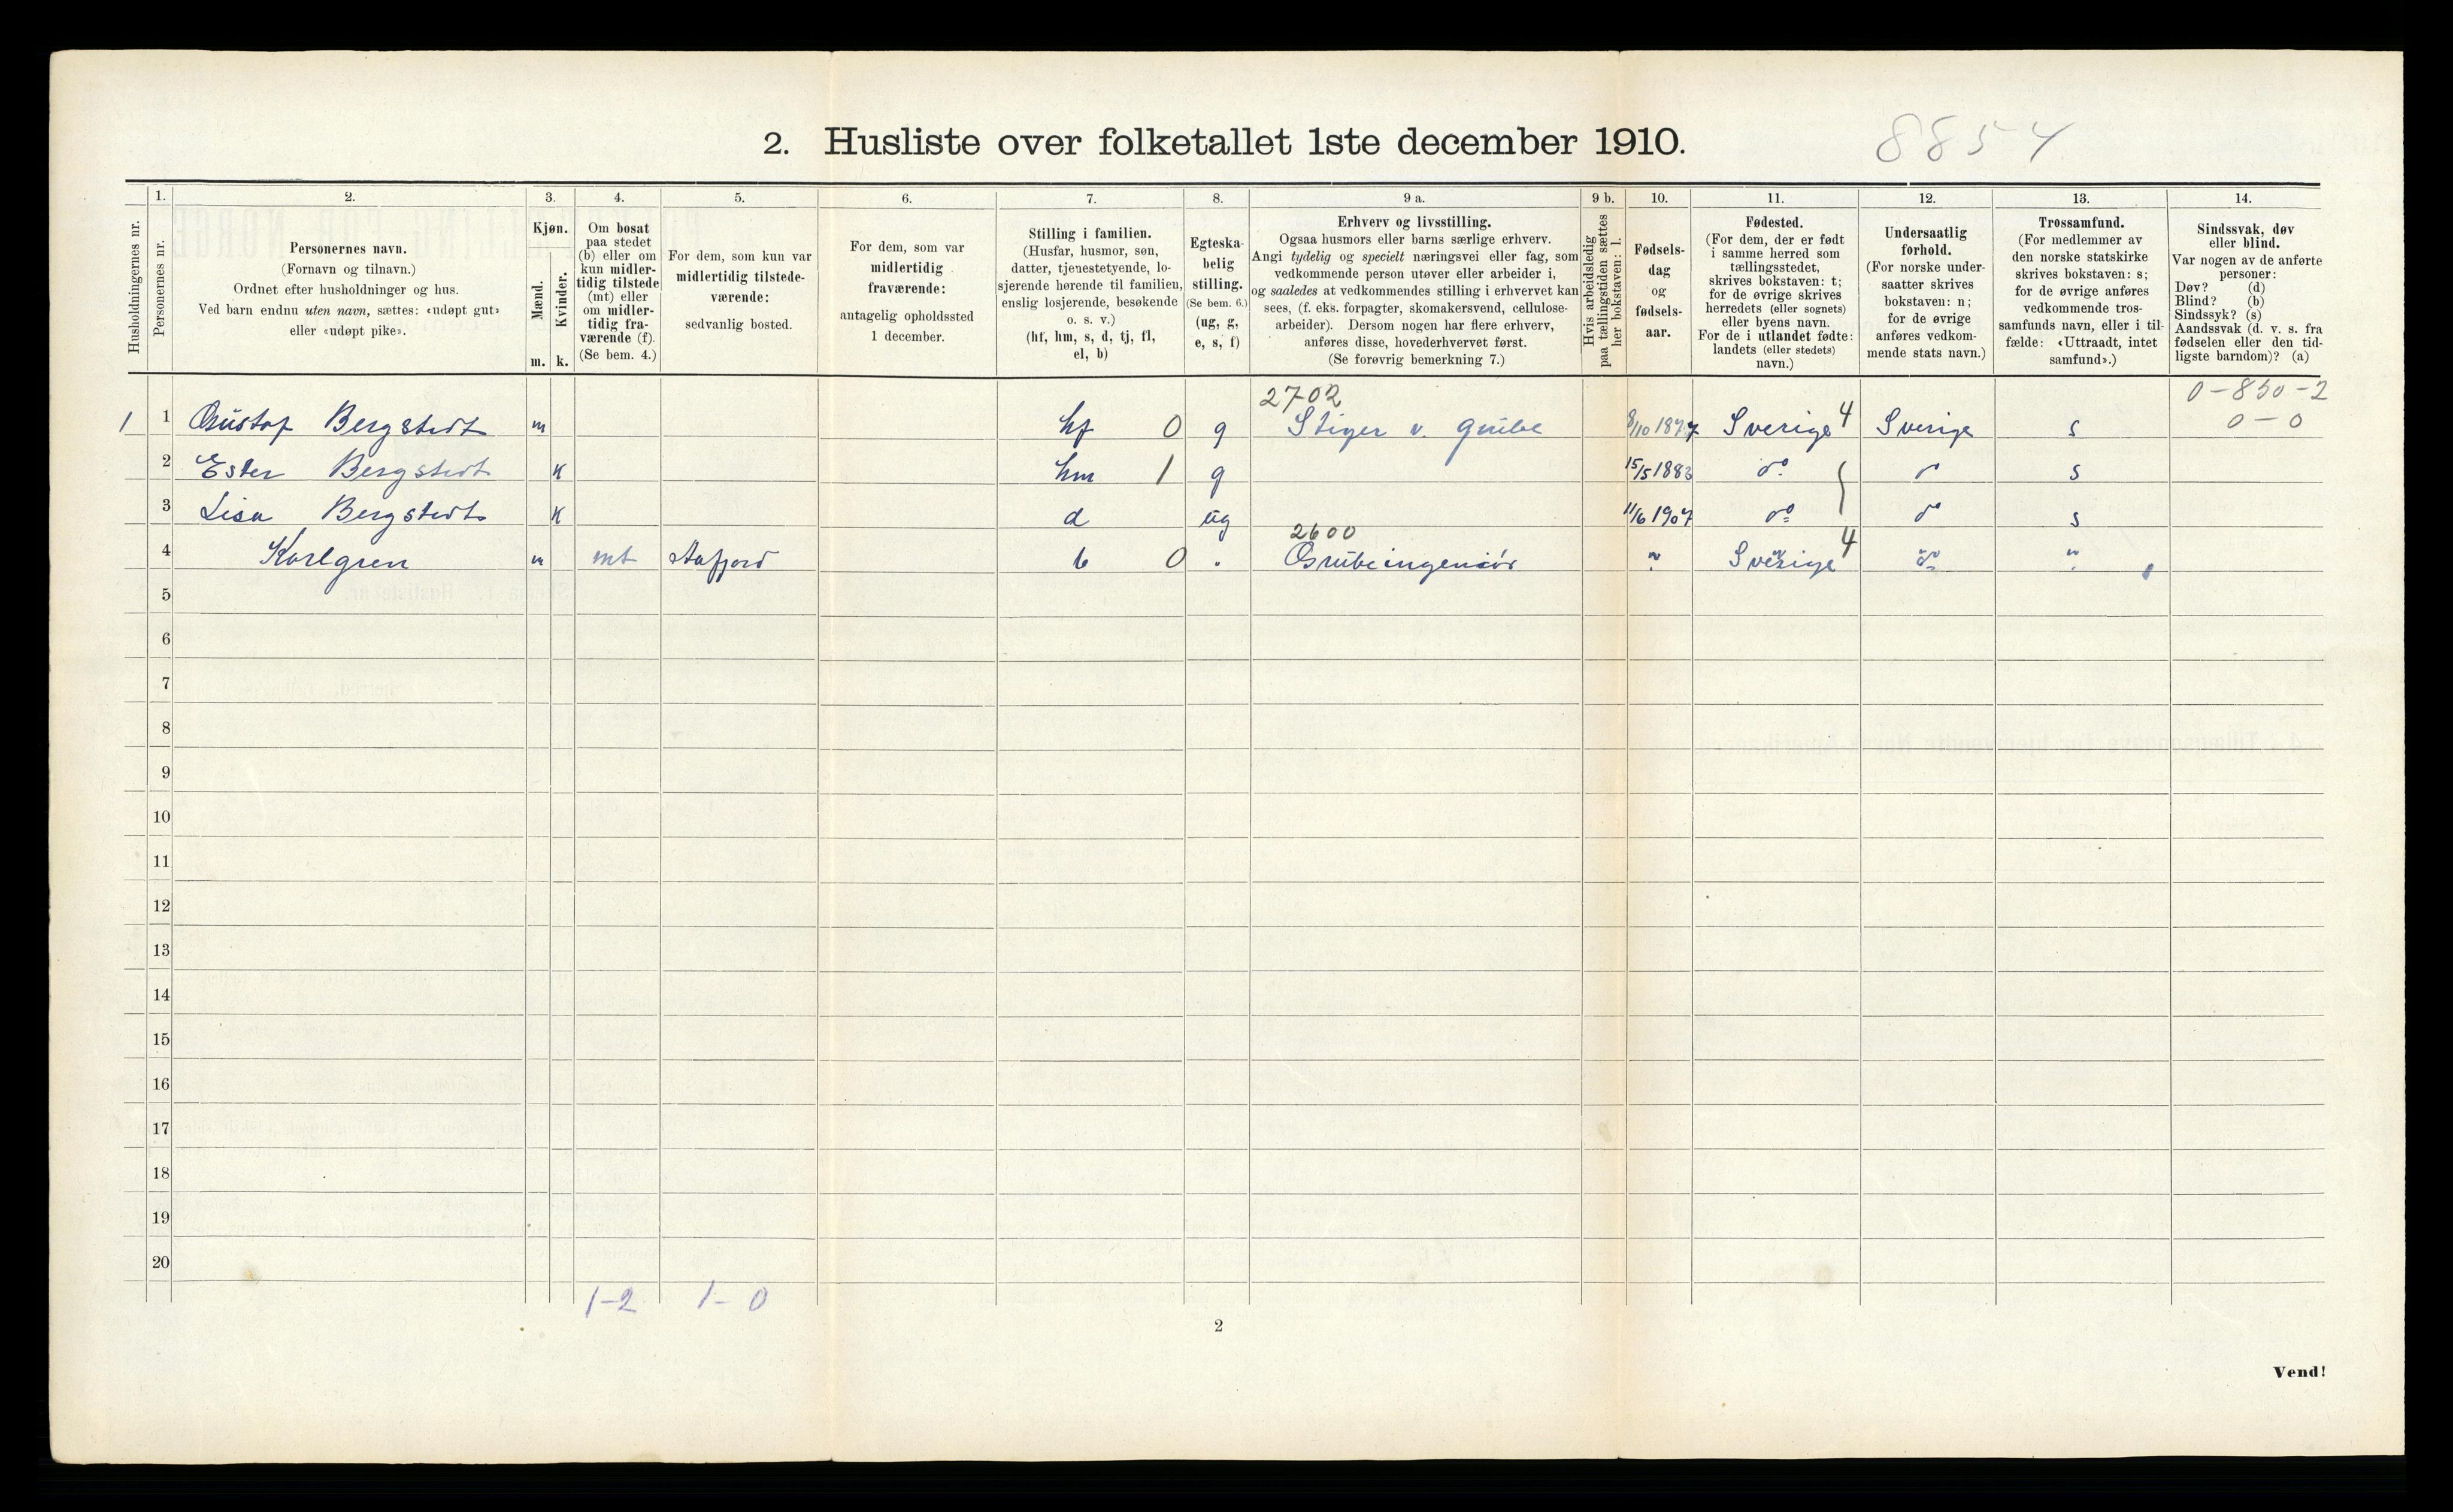 2. Husliste over folketallet 1ste december 1910.
8854
Husholdningernes nr.
1. Personernes nr.
2. Personernes navn.
(Fornavn og tilnavn.)
Ordnet efter husholdninger og hus.
Ved barn endnu uten navn, sættes: «udøpt gut»
eller «udøpt pike».
3. Kjøn.
Mænd. m.
Kvinder. k.
4. Om bosat
paa stedet
(b) eller om
kun midler-
tidig tilstede
(mt) eller
om midler-
tidig fra-
værende (f).
(Se bem. 4.)
5. For dem, som kun var
midlertidig tilstede-
værende:
sedvanlig bosted.
6. For dem, som var
midlertidig
fraværende:
antagelig opholdssted
1 december.
7. Stilling i familien.
(Husfar, husmor, søn,
datter, tjenestetyende, lo-
sjerende hørende til familien,
enslig losjerende, besøkende
o. s. v.)
(hf, hm, s, d, tj, fl,
el, b)
8. Egteska-
belig
stilling.
(Se bem. 6.)
(ug, g,
e, s, f)
9 a. Erhverv og livsstilling.
Ogsaa husmors eller barns særlige erhverv.
Angi tydelig og specielt næringsvei eller fag, som
vedkommende person utøver eller arbeider i,
og saaledes at vedkommendes stilling i erhvervet kan
sees, (f. eks. forpagter, skomakersvend, cellulose-
arbeider). Dersom nogen har flere erhverv,
anføres disse, hovederhvervet først.
(Se forøvrig bemerkning 7.)
9 b. Hvis arbeidsledig
paa tællingstiden sættes
her bokstaven: l.
10. Fødsels-
dag
og
fødsels-
aar.
11. Fødested.
(For dem, der er født
i samme herred som
tællingsstedet,
skrives bokstaven: t;
for de øvrige skrives
herredets (eller sognets)
eller byens navn.
For de i utlandet fødte:
landets (eller stedets)
navn.)
12. Undersaatlig
forhold.
(For norske under-
saatter skrives
bokstaven: n;
for de øvrige
anføres vedkom-
mende stats navn.)
13. Trossamfund.
(For medlemmer av
den norske statskirke
skrives bokstaven: s;
for de øvrige anføres
vedkommende tros-
samfunds navn, eller i til-
fælde: «Uttraadt, intet
samfund».)
14. Sindssvak, døv
eller blind.
Var nogen av de anførte
personer:
Døv? (d)
Blind? (b)
Sindssyk? (s)
Aandssvak (d. v. s. fra
fødselen eller den tid-
ligste barndom)? (a)
2702 0-850-2
1 1 Gustaf Bergstedt m hf 0 g Stiger v. grube Sverige 4 Sverige s 0-0
2 Ester Bergstedt k hm 1 g 15/5 1883 do s
3 Lisa Bergstedt k d ug 11/6 1907 do do s
2600
4 Karlgren m mt Aafjord b 0 Grubeingeniør Sverige 4
5
6
7
8
9
10
11
12
13
14
15
16
17
18
19
20
1-2 1-0
2
Vend!